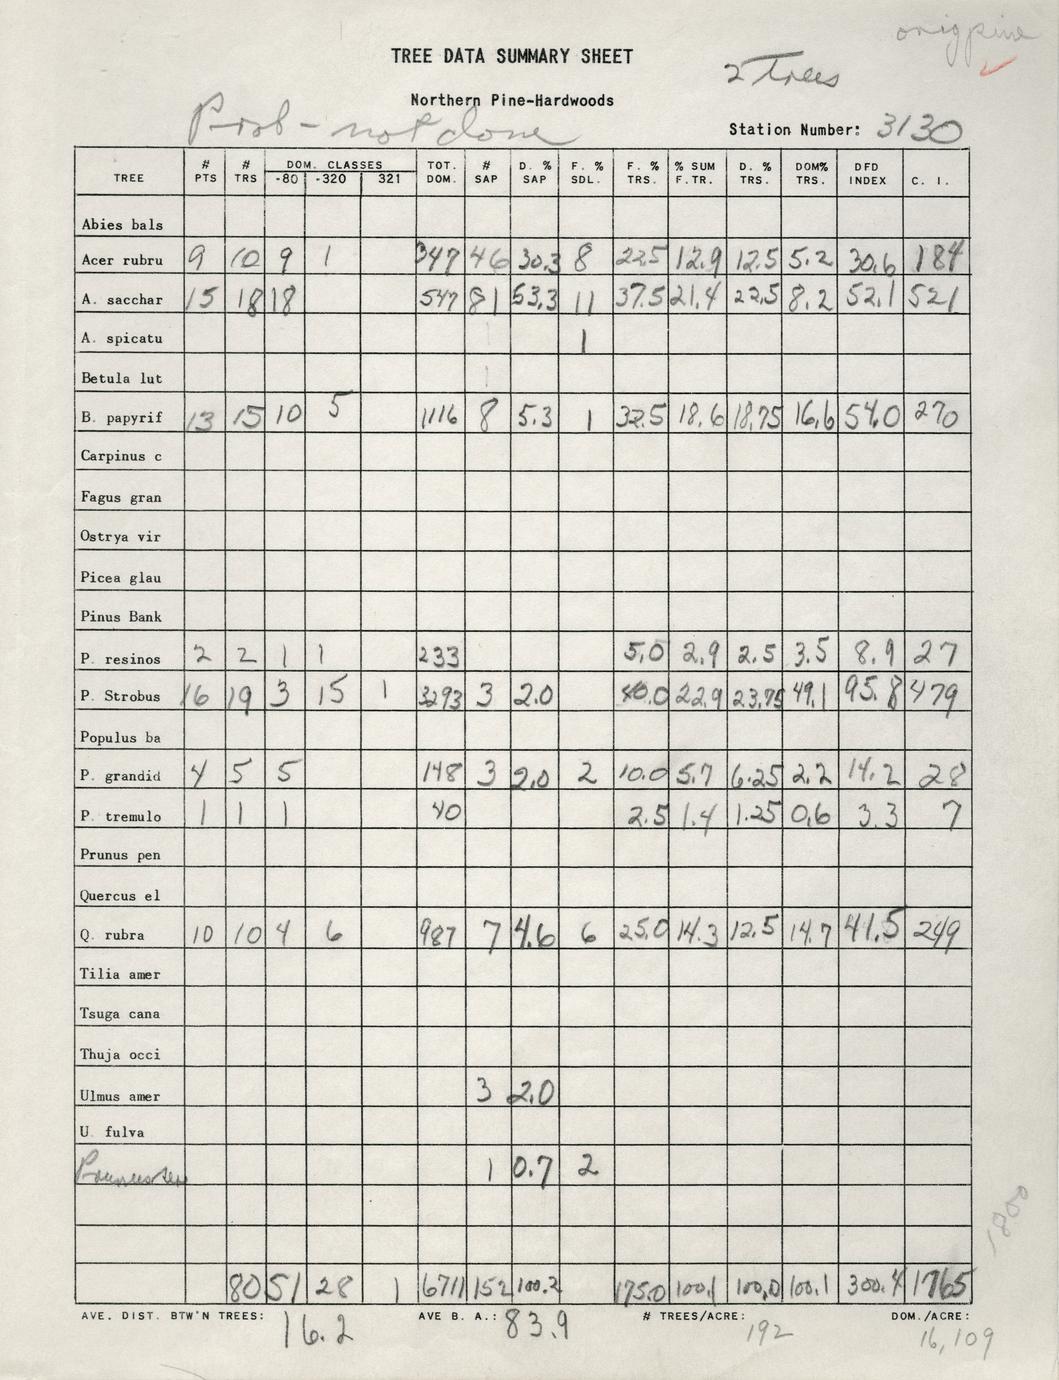 orig pine
TREE DATA SUMMARY SHEET
2 Trees
Northern Pine-Hardwoods
Prob - not done
Station Number: 3130
TREE # PTS # TRS DOM. CLASSES -80 -320 321 TOT. DOM. # SAP D. % SAP F. % SDL. F. % TRS. % SUM F.TR. D. % TRS. DOM% TRS. DFD INDEX C. I.
Abies bals
Acer rubru 9 10 9 1 347 46 30.3 8 22.5 12.9 12.5 5.2 30.6 184
A. sacchar 15 18 18 547 81 53.3 11 37.5 21.4 22.5 8.2 52.1 521
A. spicatu 1
Betula lut 1
B. papyrif 13 15 10 5 1116 8 5.3 1 32.5 18.6 18.75 16.6 54.0 270
Carpinus c
Fagus gran
Ostrya vir
Picea glau
Pinus Bank
P. resinos 2 2 1 1 233 5.0 2.9 2.5 3.5 8.9 27
P. Strobus 16 19 3 15 1 3293 3 2.0 40.0 22.9 23.75 49.1 95.8 479
Populus ba
P. grandid 4 5 5 148 3 2.0 2 10.0 5.7 6.25 2.2 14.2 28
P. tremulo 1 1 1 40 2.5 1.4 1.25 0.6 3.3 7
Prunus pen
Quercus el
Q. rubra 10 10 4 6 987 7 4.6 6 25.0 14.3 12.5 14.7 41.5 249
Tilia amer
Tsuga cana
Thuja occi
Ulmus amer 3 2.0
U. fulva
Prunus ser 1 0.7 2
1800
80 51 28 1 6711 152 100.2 175.0 100.1 100.0 100.1 300.4 1765
AVE. DIST. BTW'N TREES: 16.2 AVE B. A.: 83.9 # TREES/ACRE: 192 DOM./ACRE: 16,109